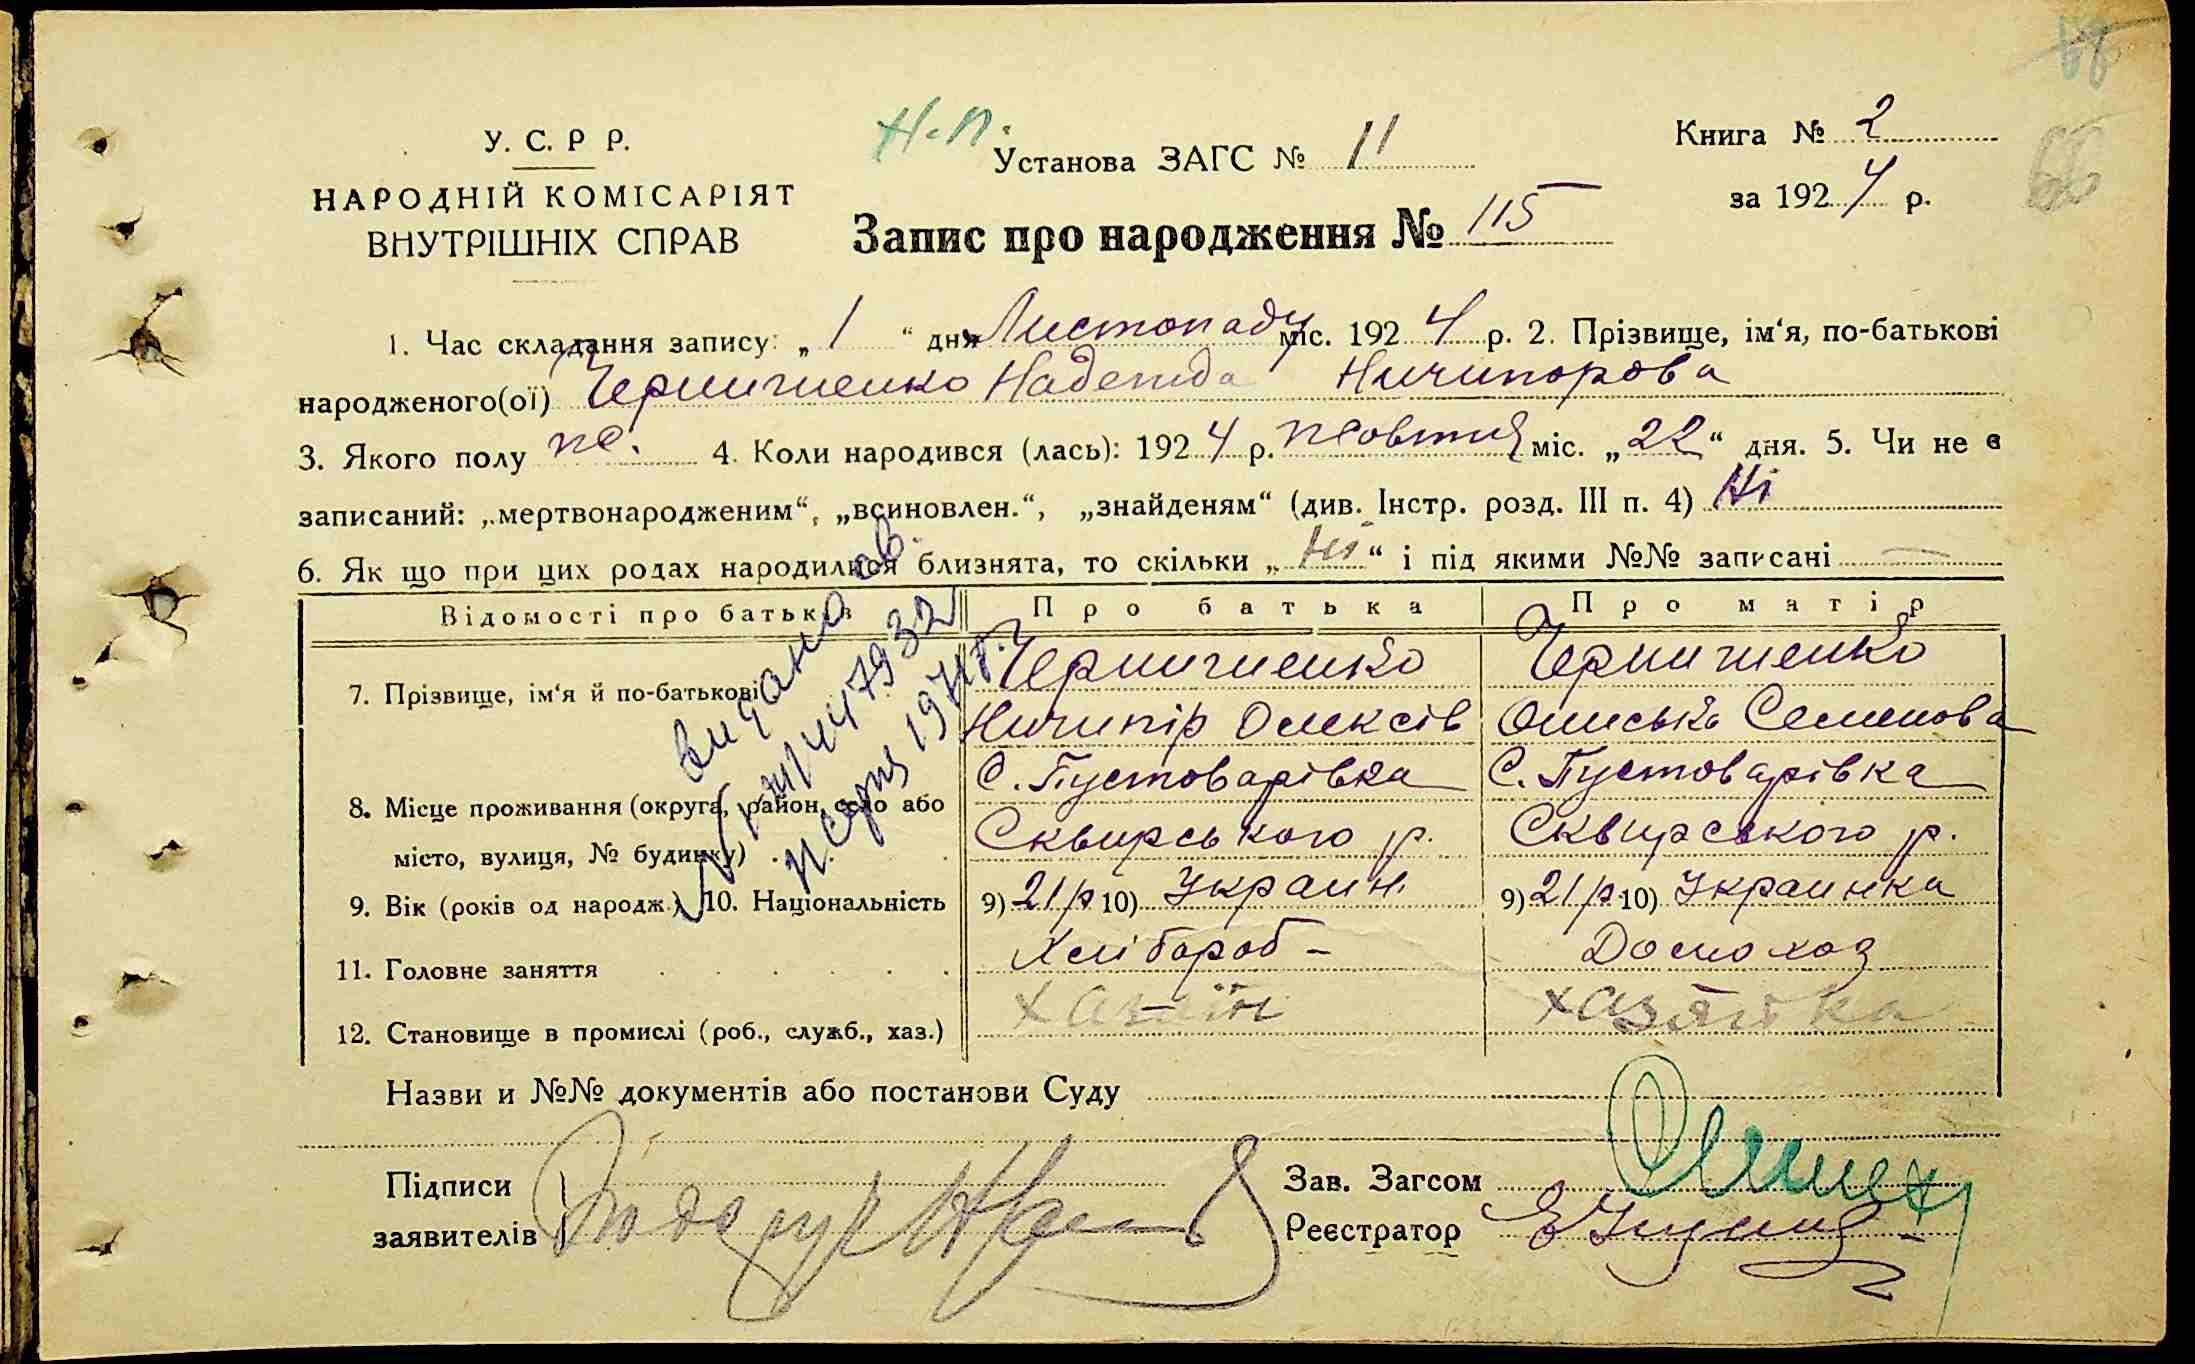 У. С. Р Р.
НАРОДНІЙ КОМІСАРІЯТ
ВНУТРІШНІХ СПРАВ
Н-П.
Установа ЗАГС № 11
Запис про народження № 115
Книга № 2
за 1924 р.
66
1. Час складання запису: „1“ дня Листопаду міс. 1924 р. 2. Прізвище, ім‘я, по-батькові
народженого(ої) Чернишенко Надежда Ничипорова
3. Якого полу же. 4. Коли народився (лась): 1924 р. жовтня міс. „22“ дня. 5. Чи не є
записаний: „мертвонародженим“, „всиновлен.“, „знайденям“ (див. Інстр. розд. III п. 4) Ні
6. Як що при цих родах народилися близнята, то скільки „ні“ і під якими №№ записані —
Відомості про батьків Про батька Про матір
7. Прізвище, ім‘я й по-батькові Чернишенко Чернишенко
Ничипір Олексів Ониська Семенова
8. Місце проживання (округа, район, село або С. Пустоварівка С. Пустоварівка
місто, вулиця, № будинку) Сквирського р. Сквирського р.
9. Вік (років од народж.) 10. Національність 9) 21 р 10) Украин. 9) 21 р. 10) Украинка
11. Головне заняття Хлібороб - Домохоз
12. Становище в промислі (роб., служб., хаз.) хазяїн хазяйка
видано св.
Назви и №№ документів або постанови Суду
Підписи
заявителів
Зав. Загсом
Реєстратор